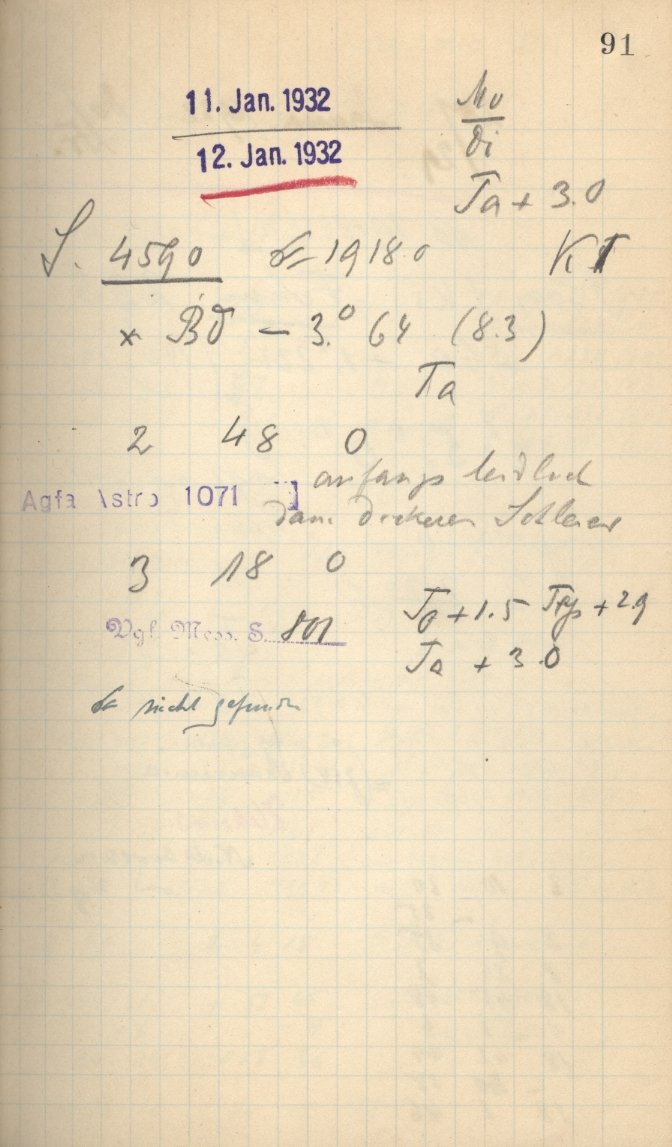 91
11. Jan. 1932
Mo
12. Jan. 1932
Di
Ta + 3.0
S. 4590 1918.0 KT
* BD - 3.° 64 (8.3)
Ta
2 48 0
anfangs leidlich
Agfa Astro 1071
dann dickerer Schleier
3 18 0
+ 1.5 + 2.9
Vgl. Mess. S. 801
Ta + 3.0
nicht gefunden